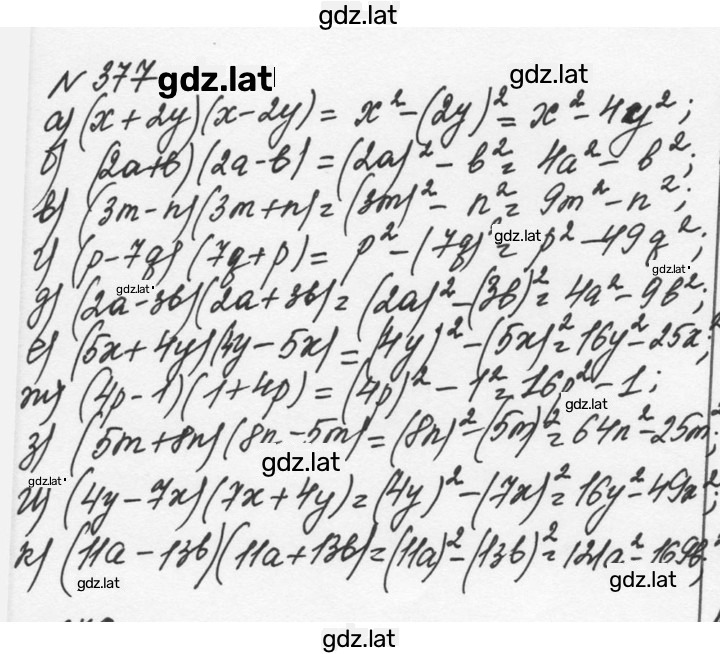 gdz.lat
N 377 gdz.lat gdz.lat
а) (x+2y)(x-2y) = x²-(2y)² = x²-4y²;
б) (2a+b)(2a-b) = (2a)² - b² = 4a² - b²;
в) (3m-n)(3m+n) = (3m)² - n² = 9m²-n²;
г) (p-7q)(7q+p) = p²-(7q)² = p²-49q²;
gdz.lat
gdz.lat
д) (2a-3b)(2a+3b) = (2a)²-(3b)² = 4a²-9b²;
gdz.lat
е) (5x+4y)(4y-5x) = (4y)²-(5x)² = 16y²-25x²;
ж) (4p-1)(1+4p) = (4p)² - 1² = 16p²-1;
gdz.lat
з) (5m+8n)(8n-5m) = (8n)²-(5m)² = 64n²-25m²;
gdz.lat
gdz.lat
и) (4y-7x)(7x+4y) = (4y)²-(7x)² = 16y²-49x²;
к) (11a-13b)(11a+13b) = (11a)²-(13b)² = 121a²-169b²;
gdz.lat gdz.lat
gdz.lat